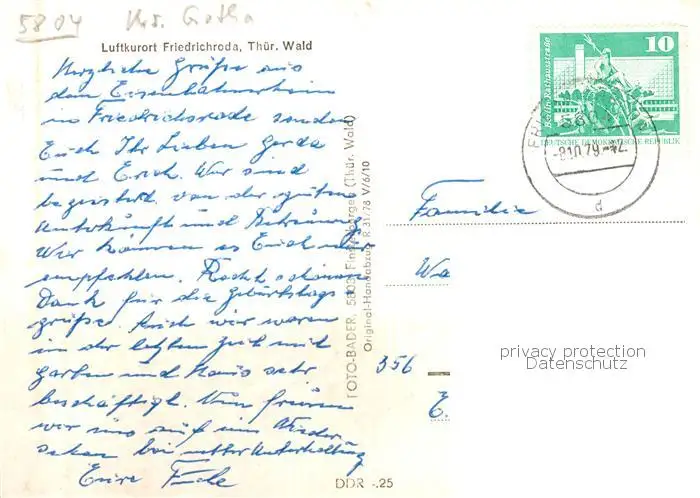 5804 Krs. Gotha
Luftkurort Friedrichroda, Thür. Wald
Herzliche Grüße aus
dem Eisenbahnerheim
in Friedrichroda senden
Euch Ihr Lieben Gerda
und Erich. Wir sind
begeistert von der guten
Unterkunft und Betreuung.
Wir können es Euch nur
empfehlen. Recht schönen
Dank für die Geburtstags
grüße. Auch wir waren
in der letzten Zeit mit
Garten und Haus sehr
beschäftigt. Nun freuen
wir uns auf ein Wieder
sehen bei netter Unterhaltung
Eure
DDR -.25
FOTO-BADER, 5803 Finsterbergen (Thür. Wald)
Original-Handabzug R 31/78 V/6/10
10
Berlin, Rathausstraße
DEUTSCHE DEMOKRATISCHE REPUBLIK
5804
-8.10.79-12
d
Familie
Wa
356
E.
privacy protection
Datenschutz